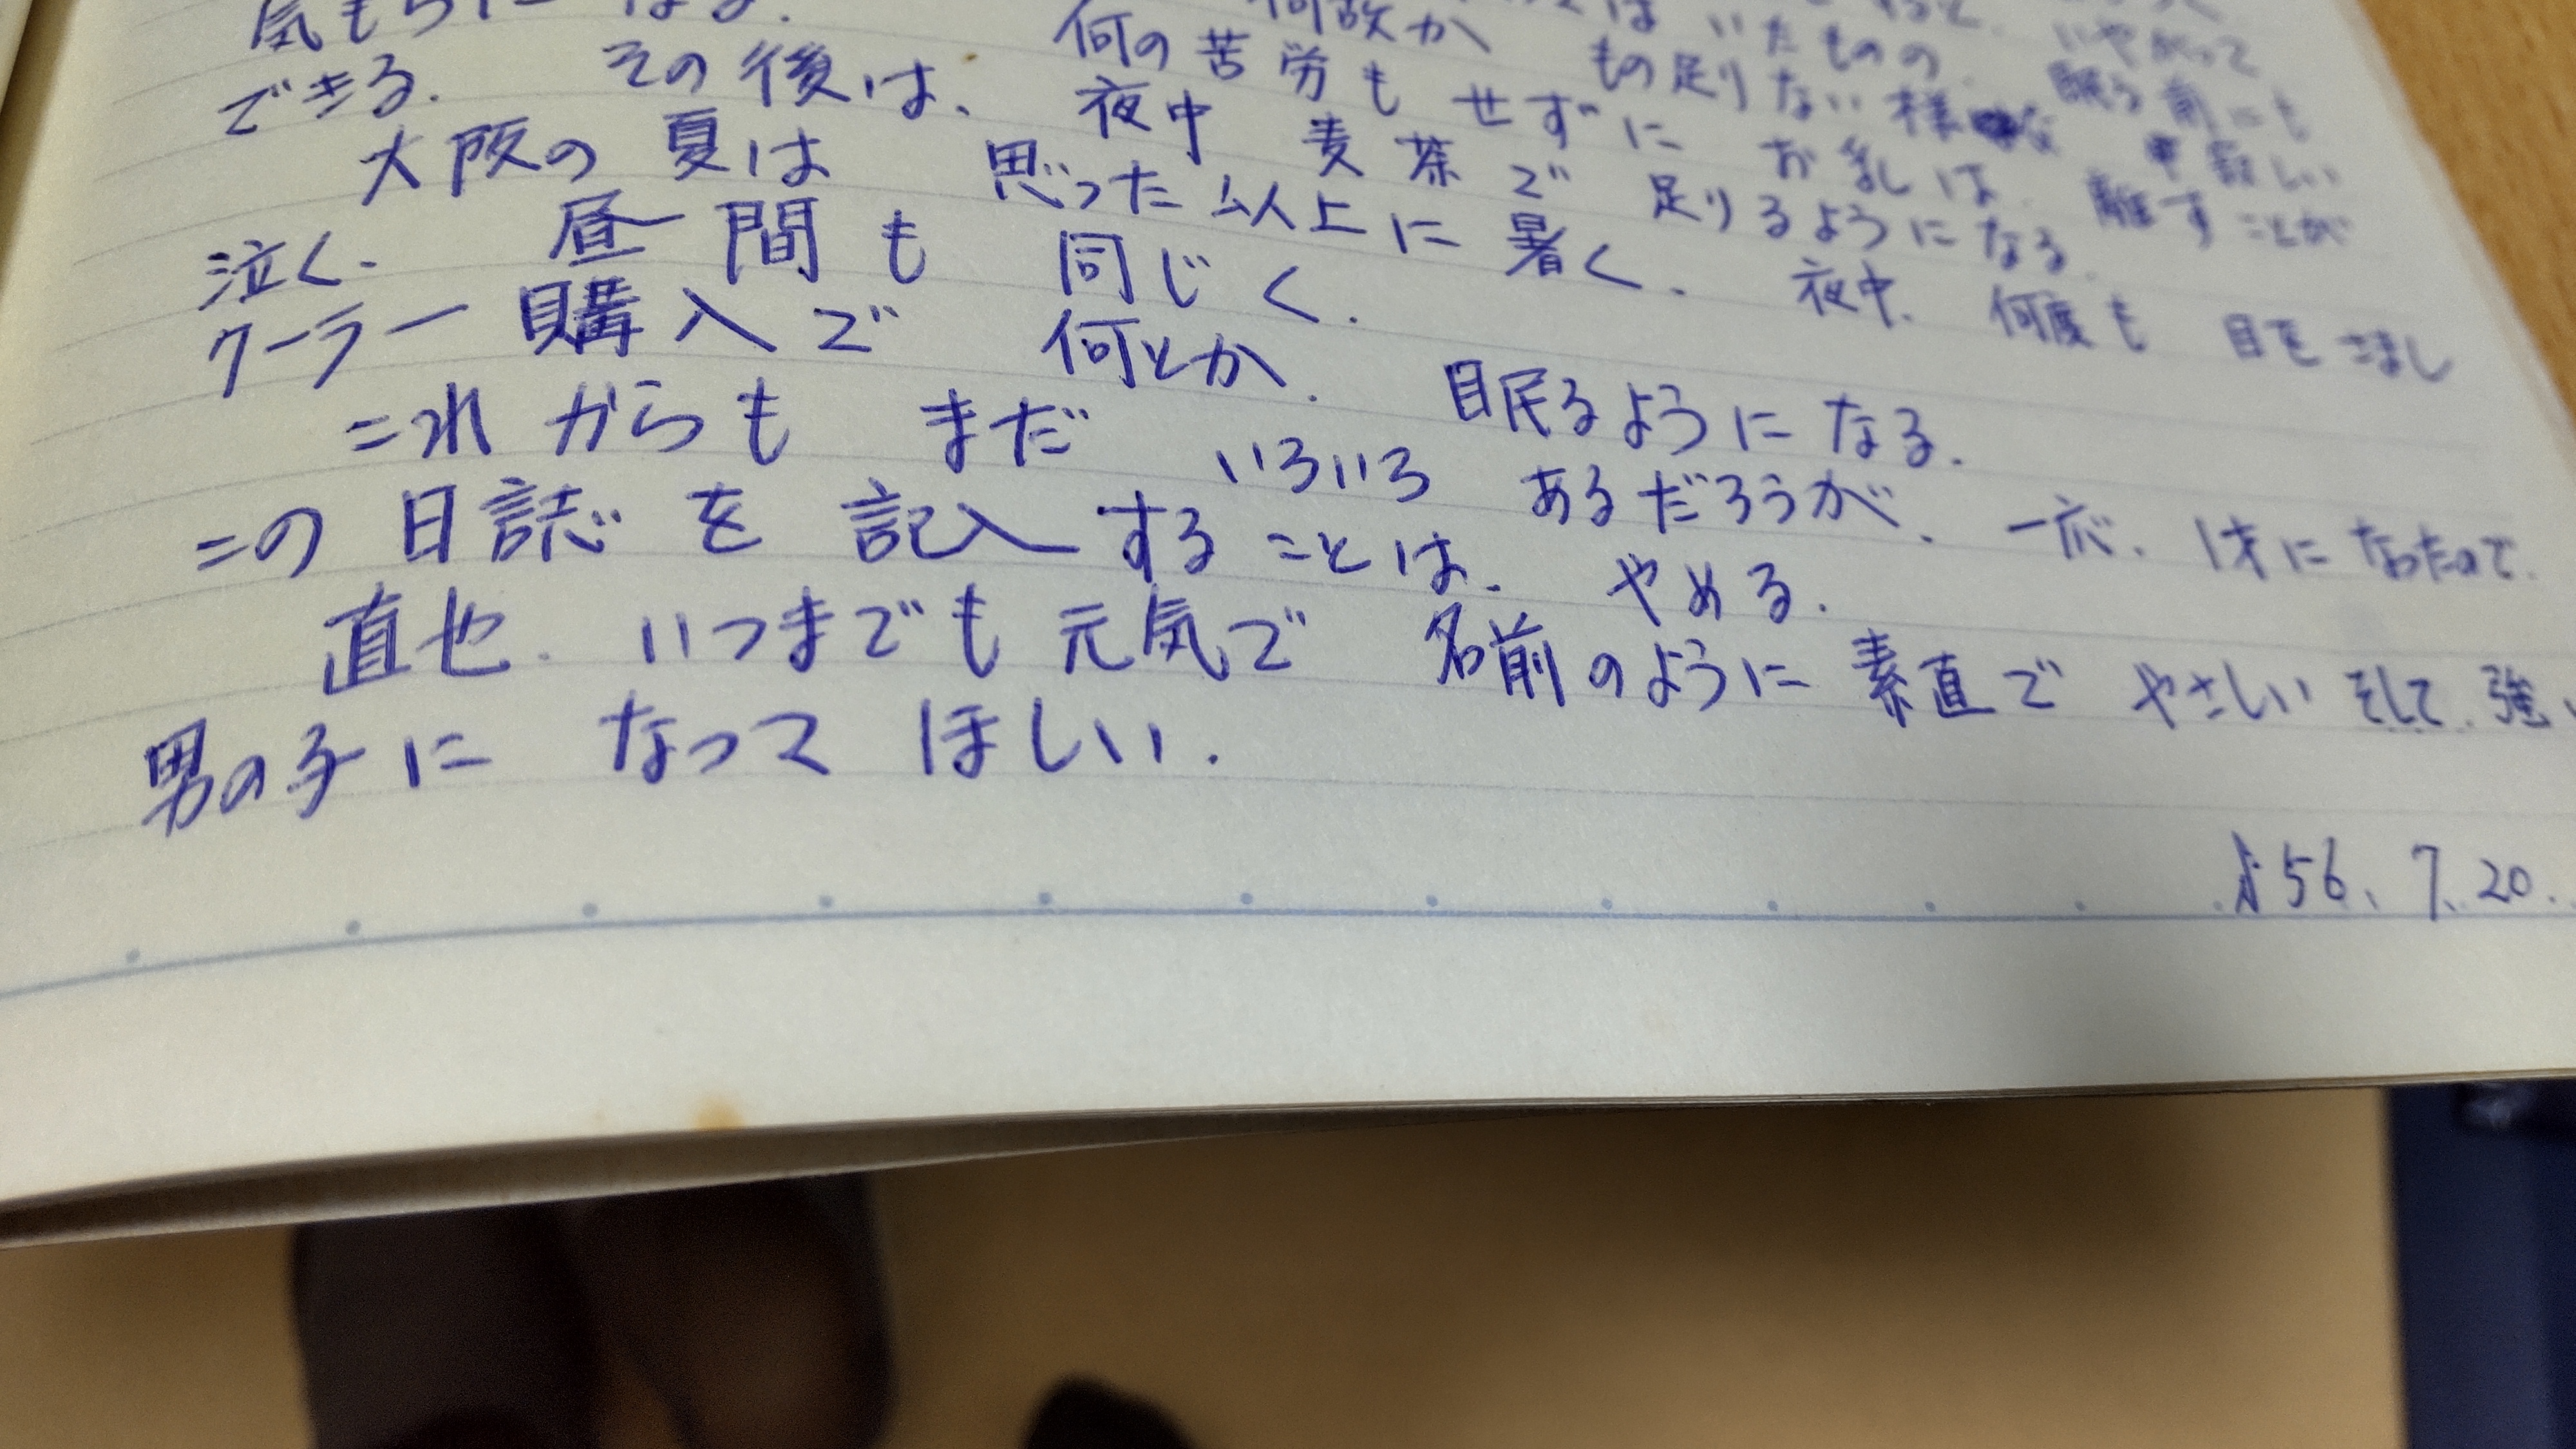 気もちに なる.
何故か はいたものの、 もの足りない様な 淋しい
できる. その後は、 何の苦労もせずに お乳は 離すことが
夜中 麦茶で 足りるようになる.
大阪の夏は 思った以上に暑く. 夜中. 何度も 目をさまし
泣く. 昼間も 同じく.
クーラー購入で 何とか. 眠るようになる.
これからも まだ いろいろ あるだろうが. 一応. 1才になったので.
この日誌を記入することは. やめる.
直也. いつまでも元気で 名前のように素直で やさしい そして. 強い
男の子に なって ほしい.
S56. 7. 20.